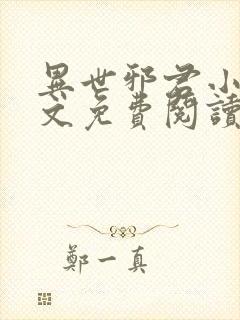 異世邪君小
文免費閱讀
鄭一真